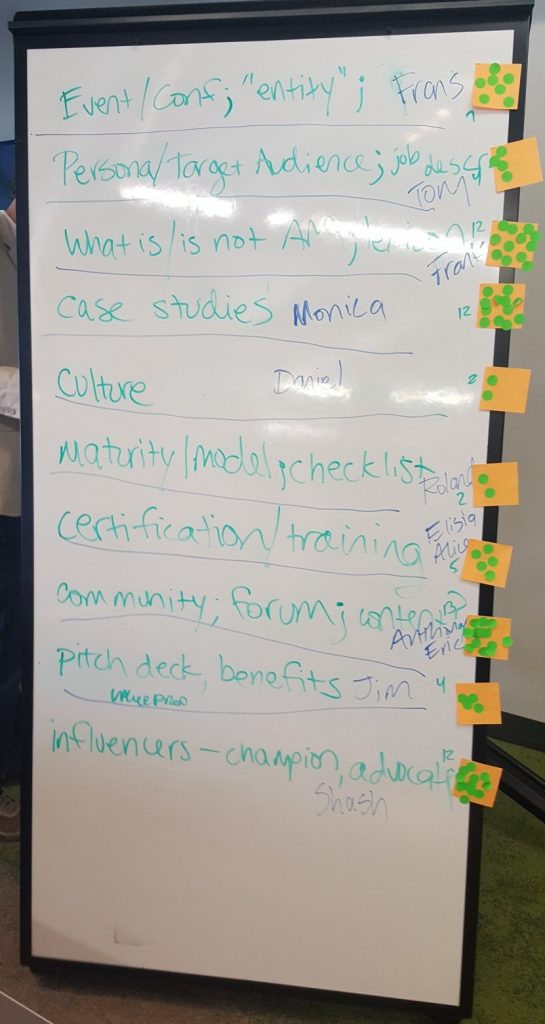 Event/Conf; "entity"; Frans
7
Persona/Target Audience; job descr
4
Tom
What is/is not AM; 12
Frank
case studies Monica
12
Culture Daniel
2
Maturity/model; checklist
Roland
2
certification/training
Elisia
Alice
5
community; forum; content
13
Eric
pitch deck, benefits Jim 4
value prop
influencers – champion, advocate
12
Shash